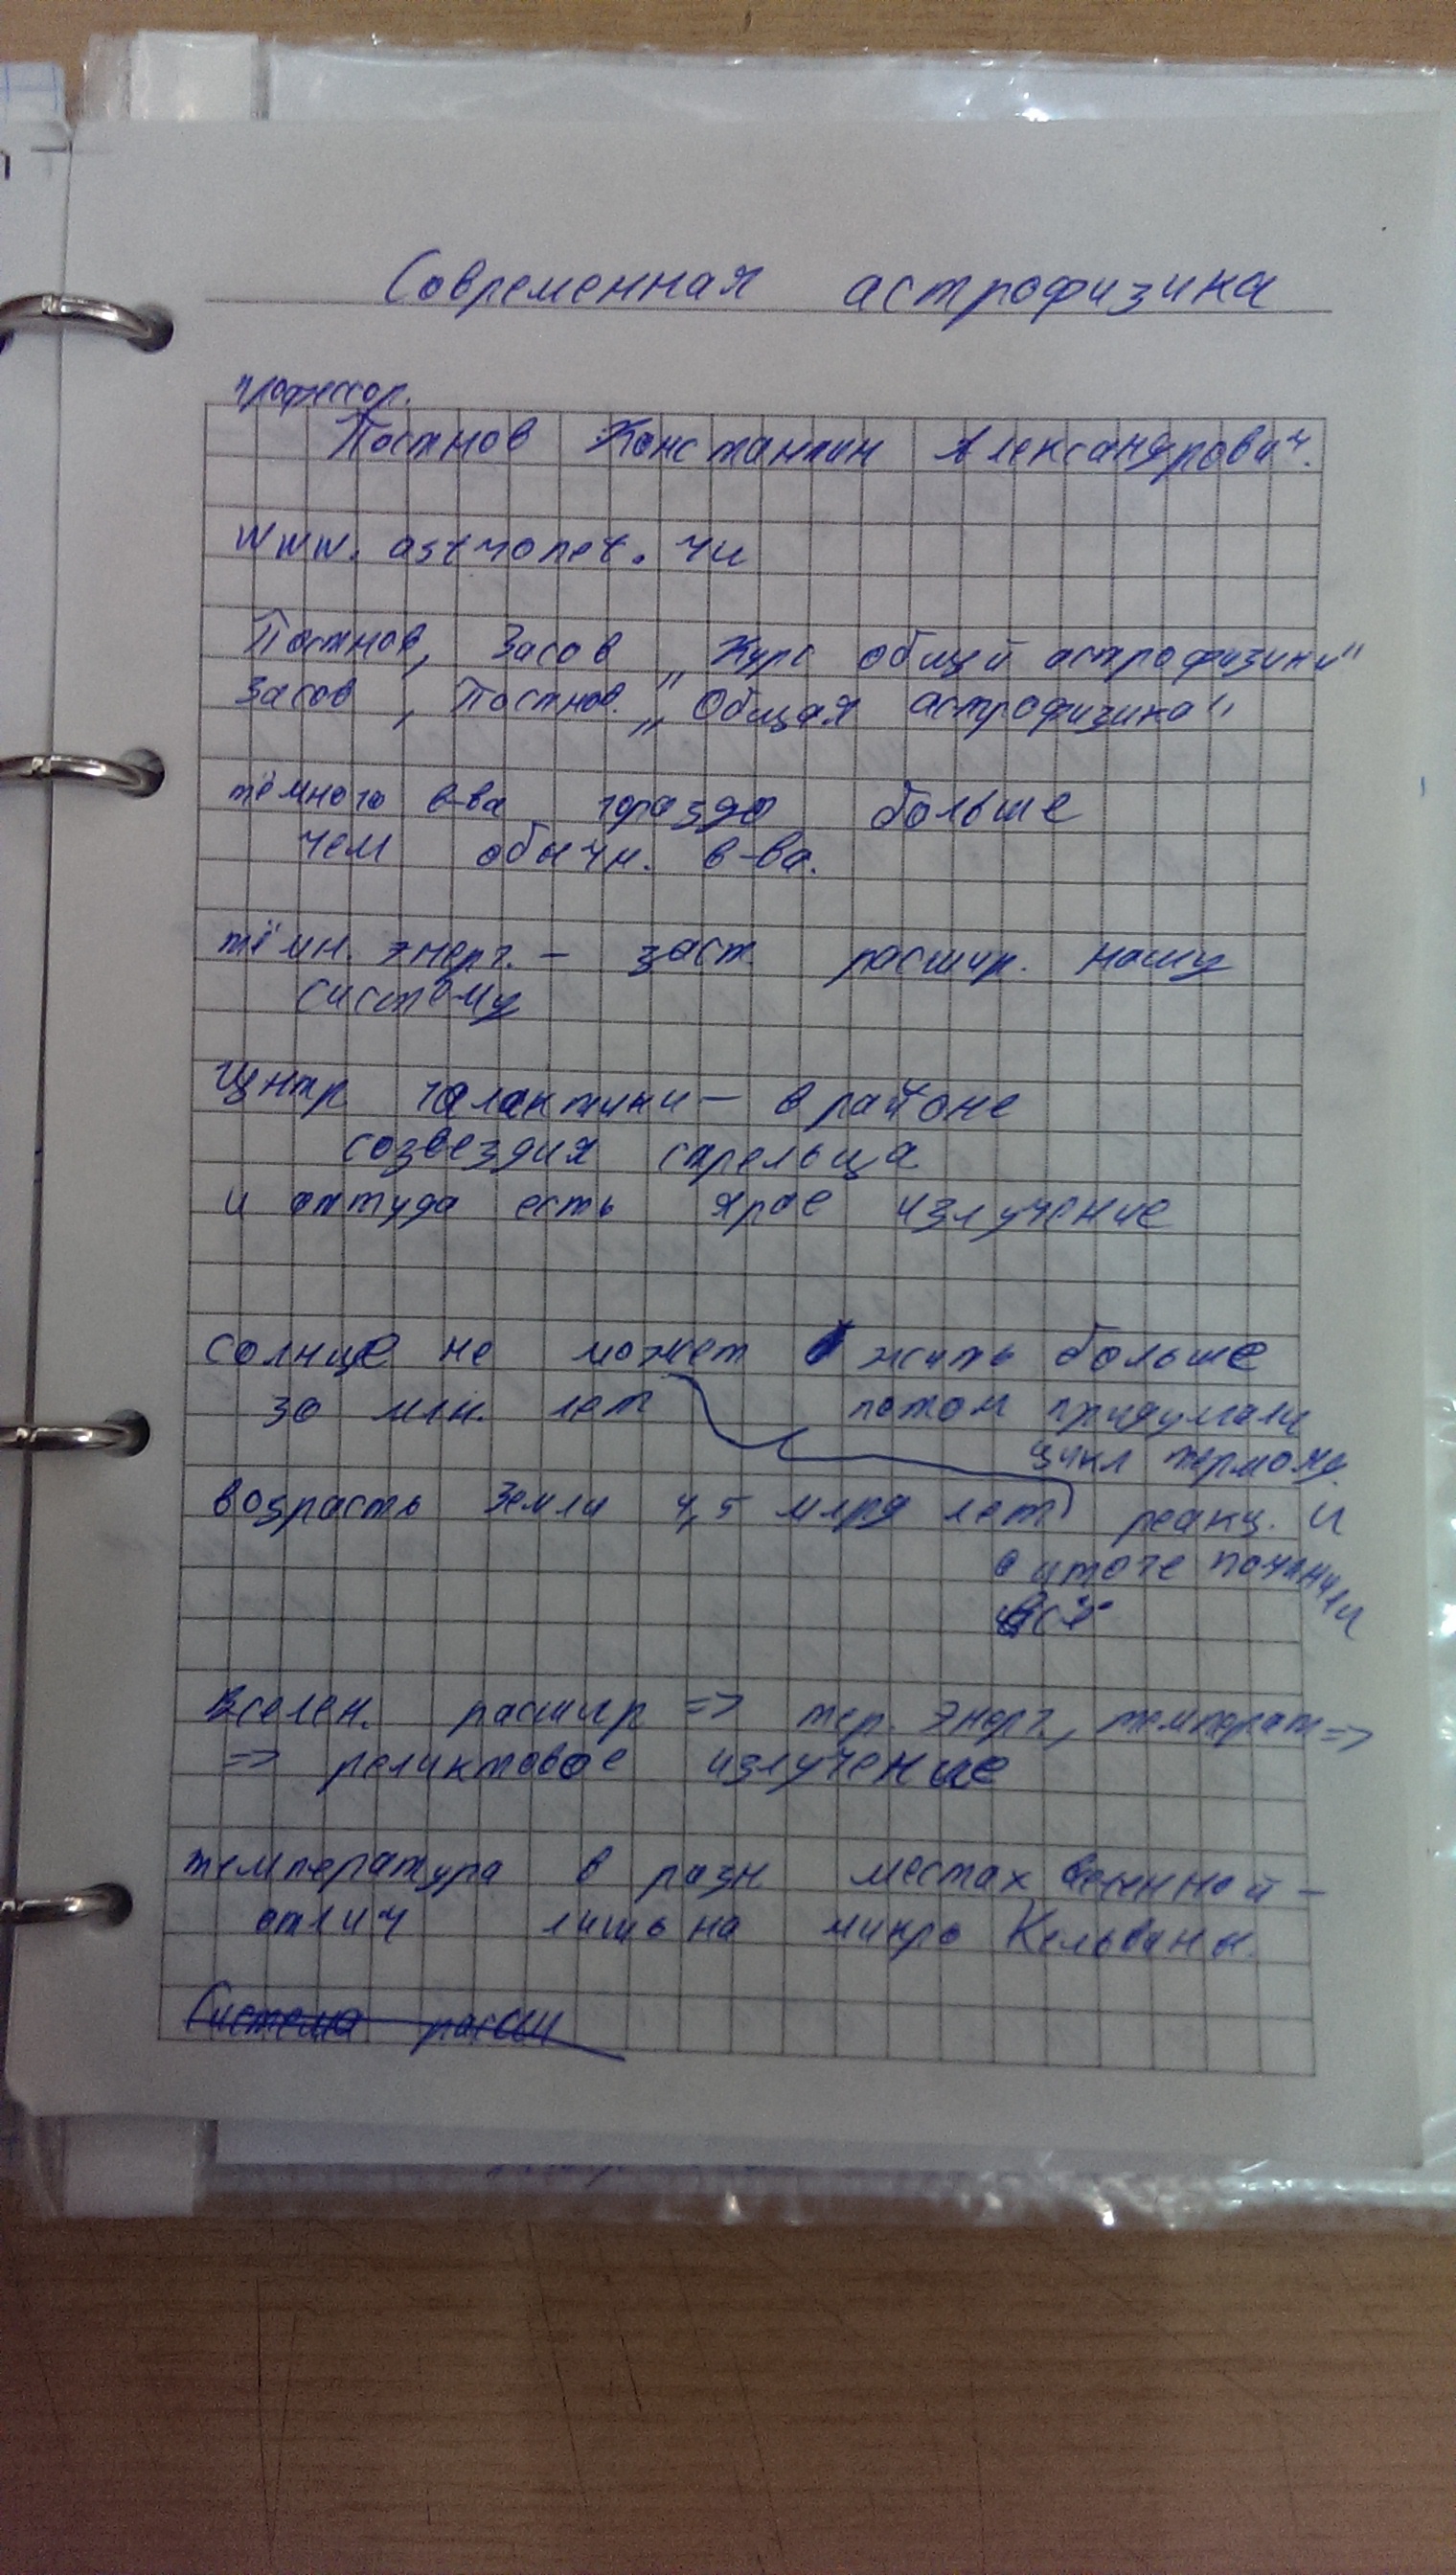 Современная астрофизика
профессор.
Постнов Константин Александрович.
www.astronet.ru
Постнов, Засов „Курс общей астрофизики"
Засов, Постнов. „Общая астрофизика"
тёмного в-ва гораздо больше
чем обычн. в-ва.
тёмн. энерг. – заст. расшир. нашу
систему
Центр галактики – в районе
созвездия стрельца
и оттуда есть ярое излучение
солнце не может жить больше
30 млн. лет потом придумали
цикл термояд.
возрасть Земли 4,5 млрд лет реакц. и
в итоге починили
всё
вселен. расшир => тер. энерг., температ =>
=> реликтовое излучение
температура в разн местах –
отлич лишь на микро Кельвины.
Система расш